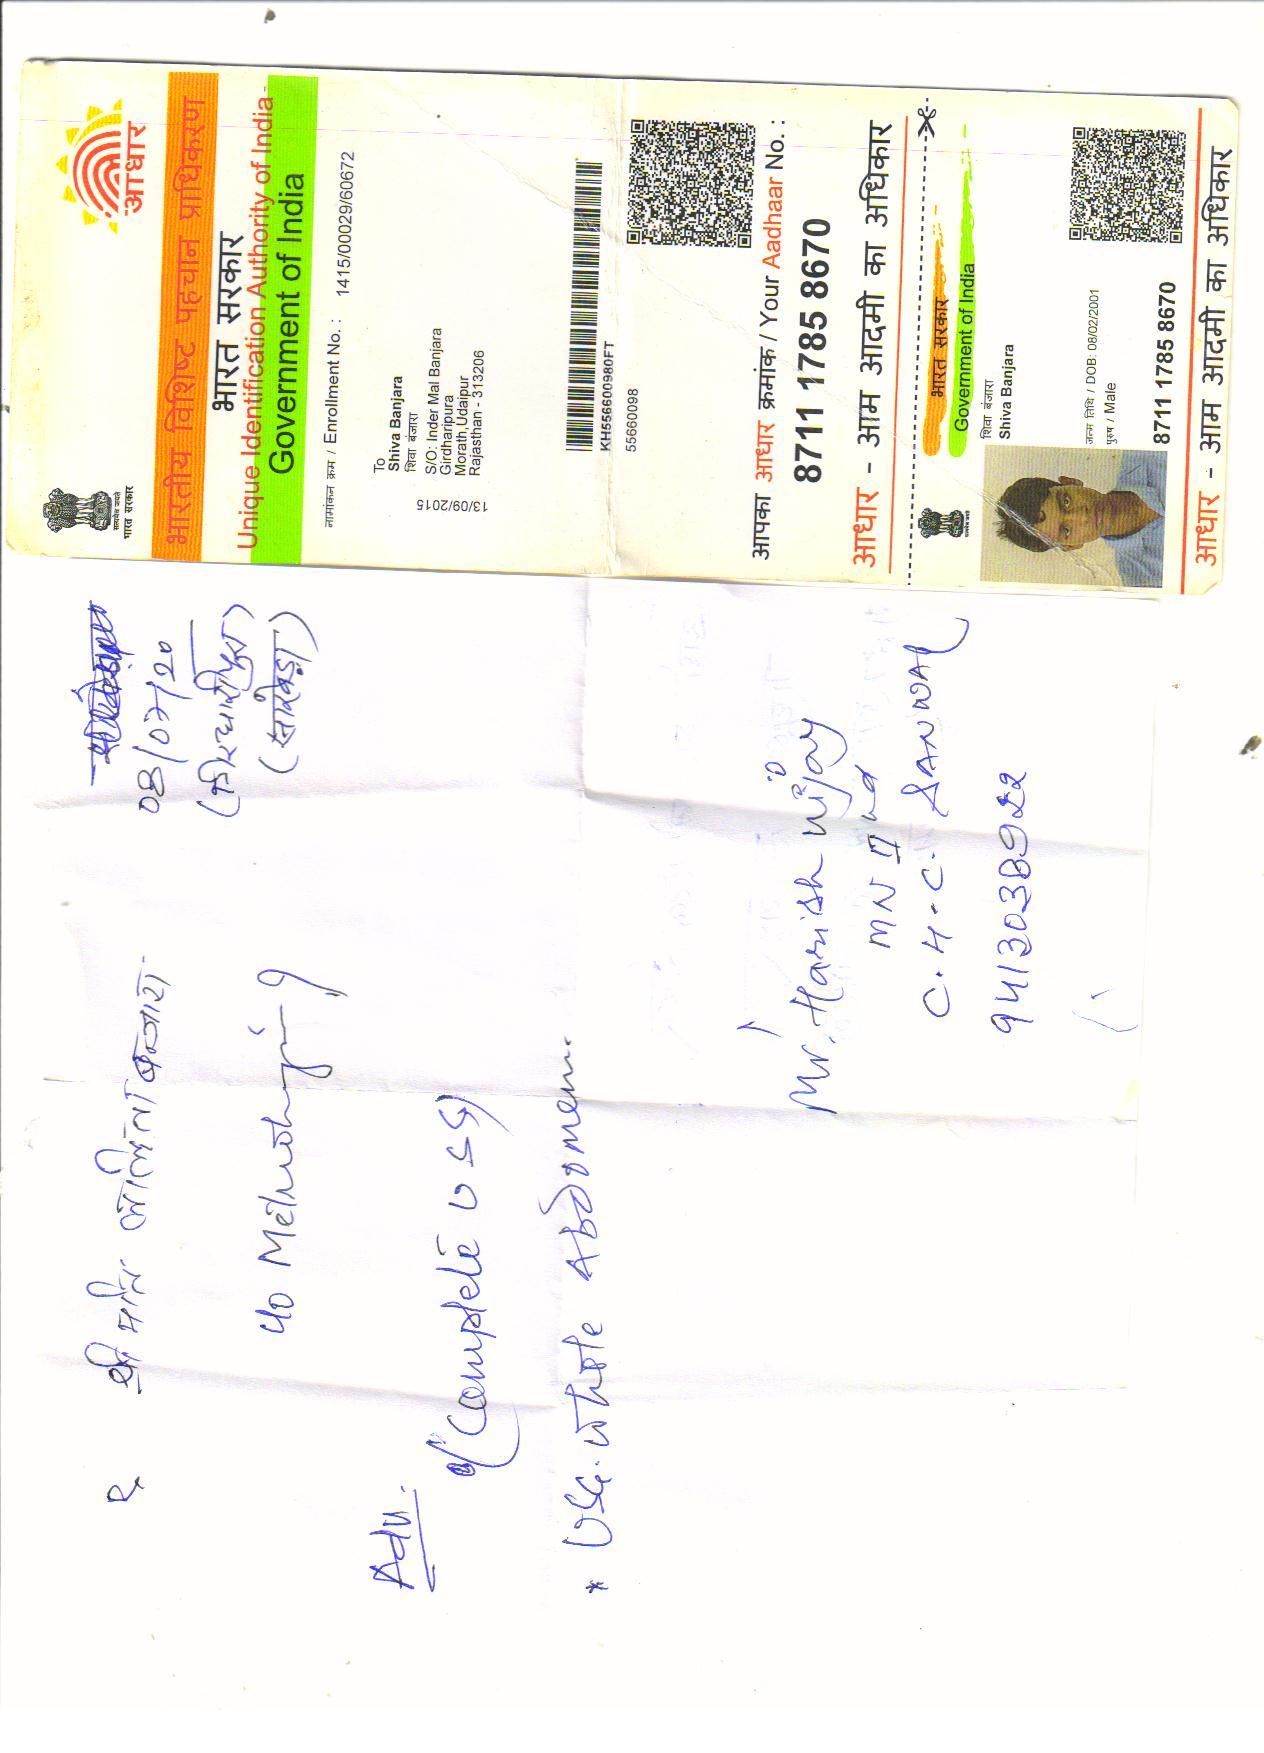 आधार
भारत सरकार
भारतीय विशिष्ट पहचान प्राधिकरण
भारत सरकार
Unique Identification Authority of India
Government of India
नामांकन क्रम / Enrollment No. : 1415/00029/60672
To
Shiva Banjara
शिवा बंजारा
S/O: Inder Mal Banjara
Girdharipura
Morath,Udaipur
Rajasthan - 313206
13/09/2015
KH556600980FT
55660098
आपका आधार क्रमांक / Your Aadhaar No. :
8711 1785 8670
आधार - आम आदमी का अधिकार
भारत सरकार
Government of India
शिवा बंजारा
Shiva Banjara
जन्म तिथि / DOB: 08/02/2001
पुरुष / Male
8711 1785 8670
आधार - आम आदमी का अधिकार
08/07/20
श्री मति
Adv.
Complete USG
* USG. Whole Abdomen.
Mr. Harish Vijay
MN II nd
C.H.C.